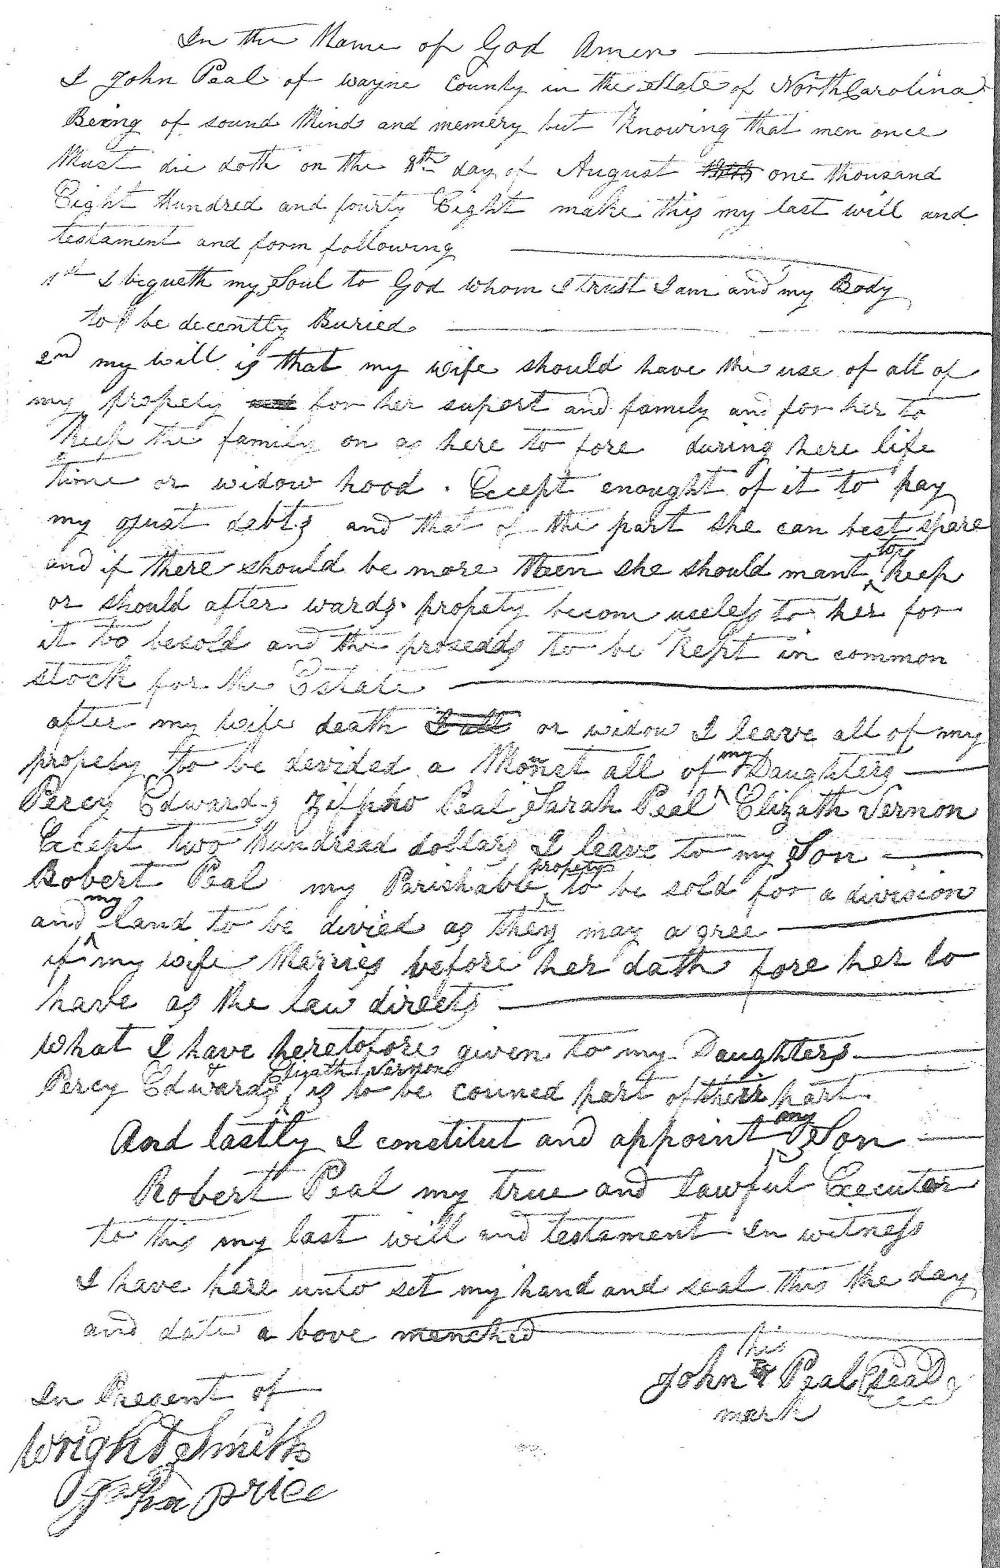 In the Name of God Amen
I John Peal of wayne County in the State of North Carolina
Being of sound Mind and memery but Knowing that men once
Must die doth on the 8th day of August one thousand
Eight Hundred and fourty Eight make this my last will and
testament and form following
1st I bequeth my Soul to God whom I trust I am and my Body
to be decently Buried
2nd my will is that my wife should have the use of all of
my propety for her suport and family and for her to
Keep the family on as here to fore during here life
time or widow hood . Except enought of it to pay
my gust debts and that of the part she can best spare
and if there should be more then she should mant to Keep
or should after wards propety becom useless to her for
it to besold and the proseads to be Kept in common
stock for the Estate
after my wife death or widow I leave all of my
propety to be devided a Monet all of my Daughters
Percy Edwards Zilpho Peal Sarah Peal Elizath Vernon
Except two Hundread dollars I leave to my Son
Robert Peal my Parishable propety to be sold for a division
and my land to be divied as they may a gree
if my wife Merries before her dath fore her to
have as the law directs
What I have heretofore given to my Daughters
Percy Edwards & Elizath Vernon is to be couned part of their part
And lastly I constitut and appoint my Son
Robert Peal my true and lawful Executor
to this my last will and testament In witness
I have here unto set my hand and seal this the day
and date a bove menched
his
John X Peal (Seal)
mark
In Present of
Wright Smith
John Price